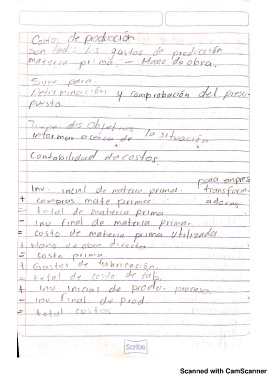 Costo de producción
Son tod: ls gastos de producción
materia prima - Mano de obra.
Sirve para.
Determinación y comprobación del presu-
puesto.
Tiene dos Objetivos
informar acerca de la situación
Contabilidad de costos.
para empresa
transform-
adoras
Inv. inicial de materia prima.
+ compras mate prima
= total de materia prima
- inv final de materia prima
= costo de materia prima utilizada
+ Mano de obra directa
= costo prima.
+ Gastos de fabricación.
= total de costo de fab.
+ inv. inicial de produ. proceso
- inv final de prod.
= total costos
Scribe
Scanned with CamScanner